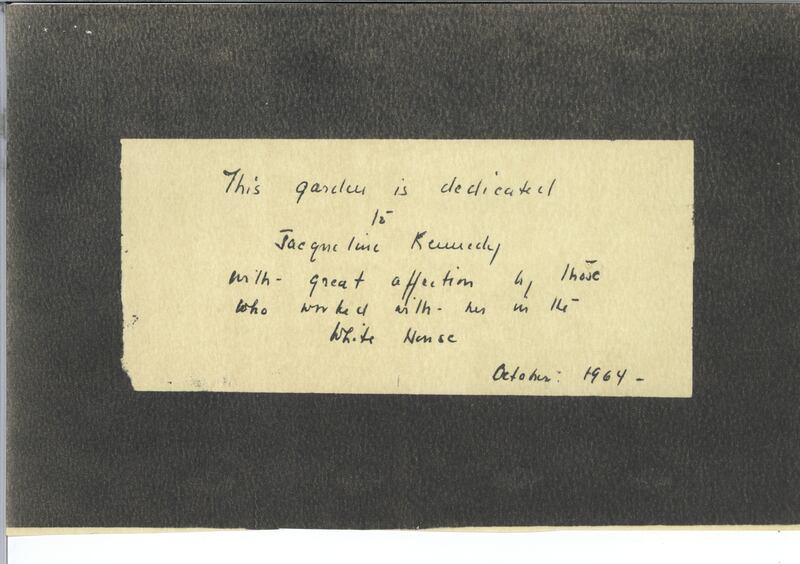 This garden is dedicated
to
Jacqueline Kennedy
with - great affection by those
who worked with - her in the
White House
October: 1964 -